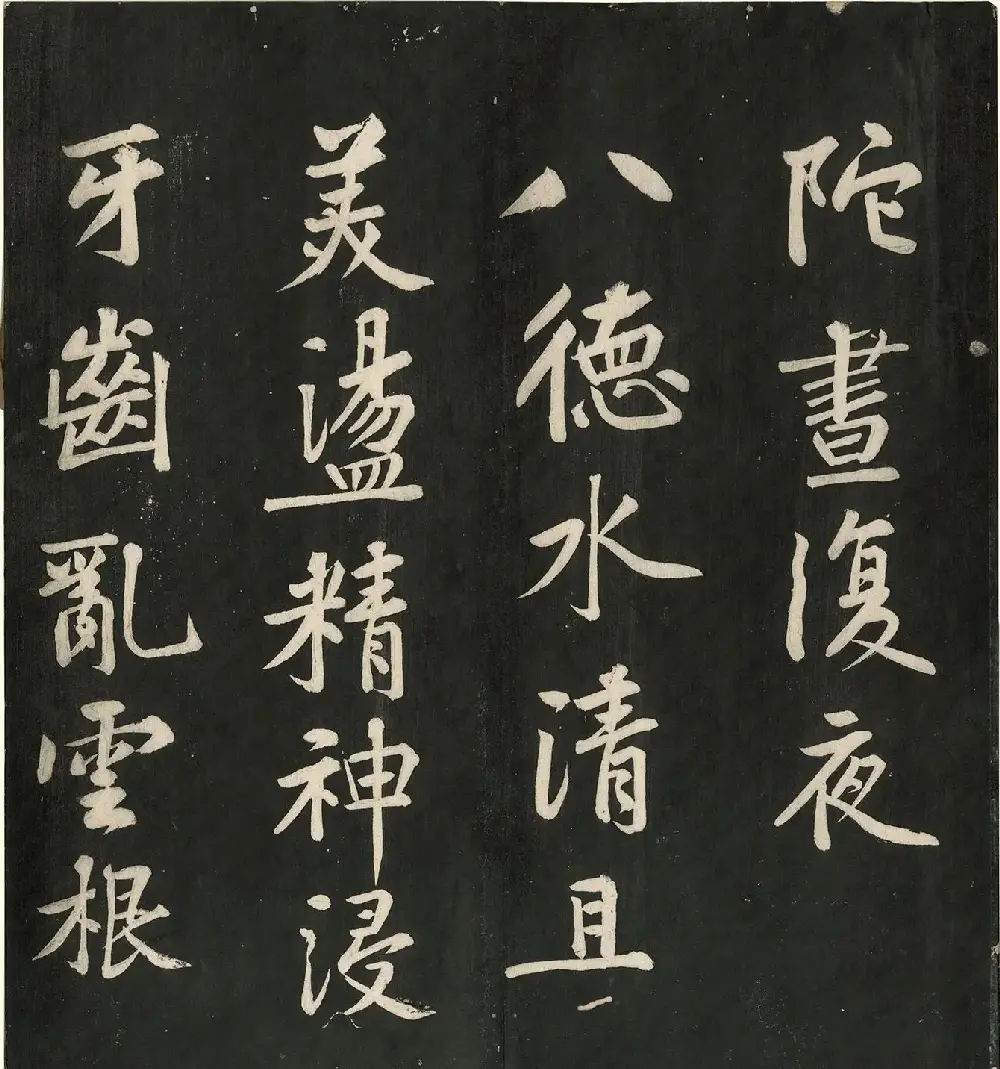 陀晝復夜
八德水清且
美盪精神浸
牙齒亂雲根